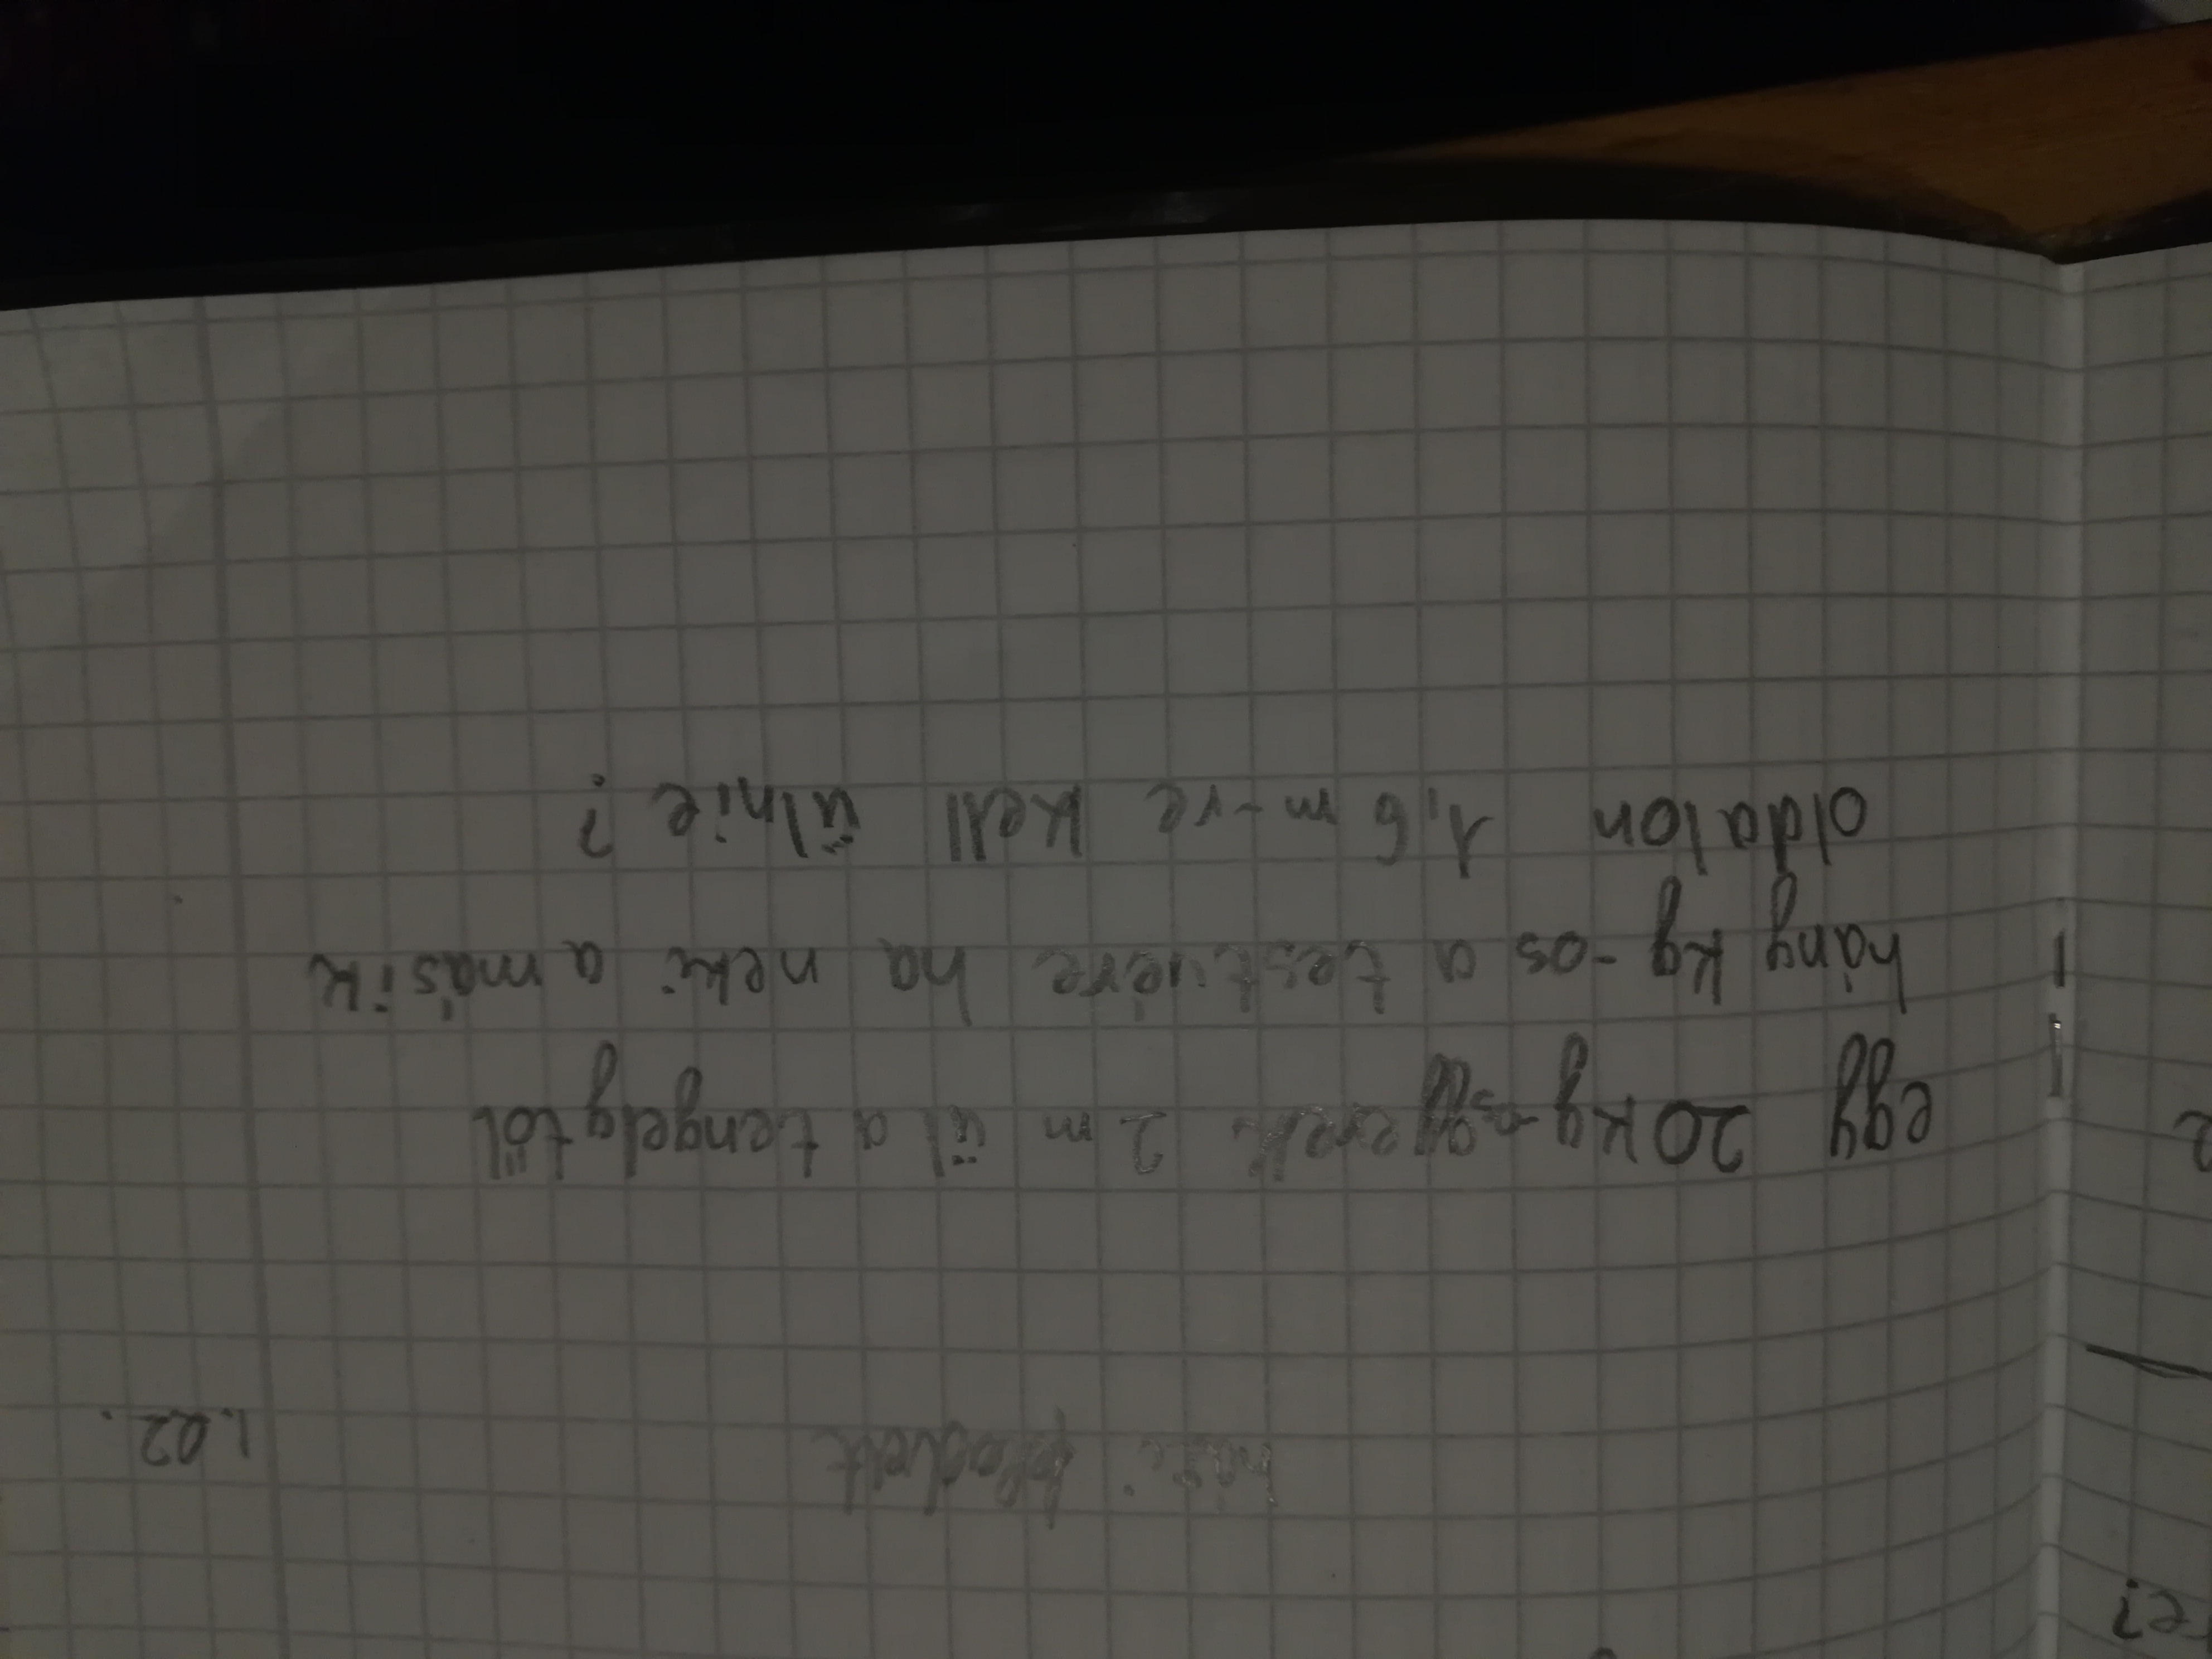 házi feladat
1.22.
egy 20 kg-os gyerek 2 m ül a tengelytől
hány kg-os a testvére ha neki a másik
oldalon 1,6 m-re kell ülnie?